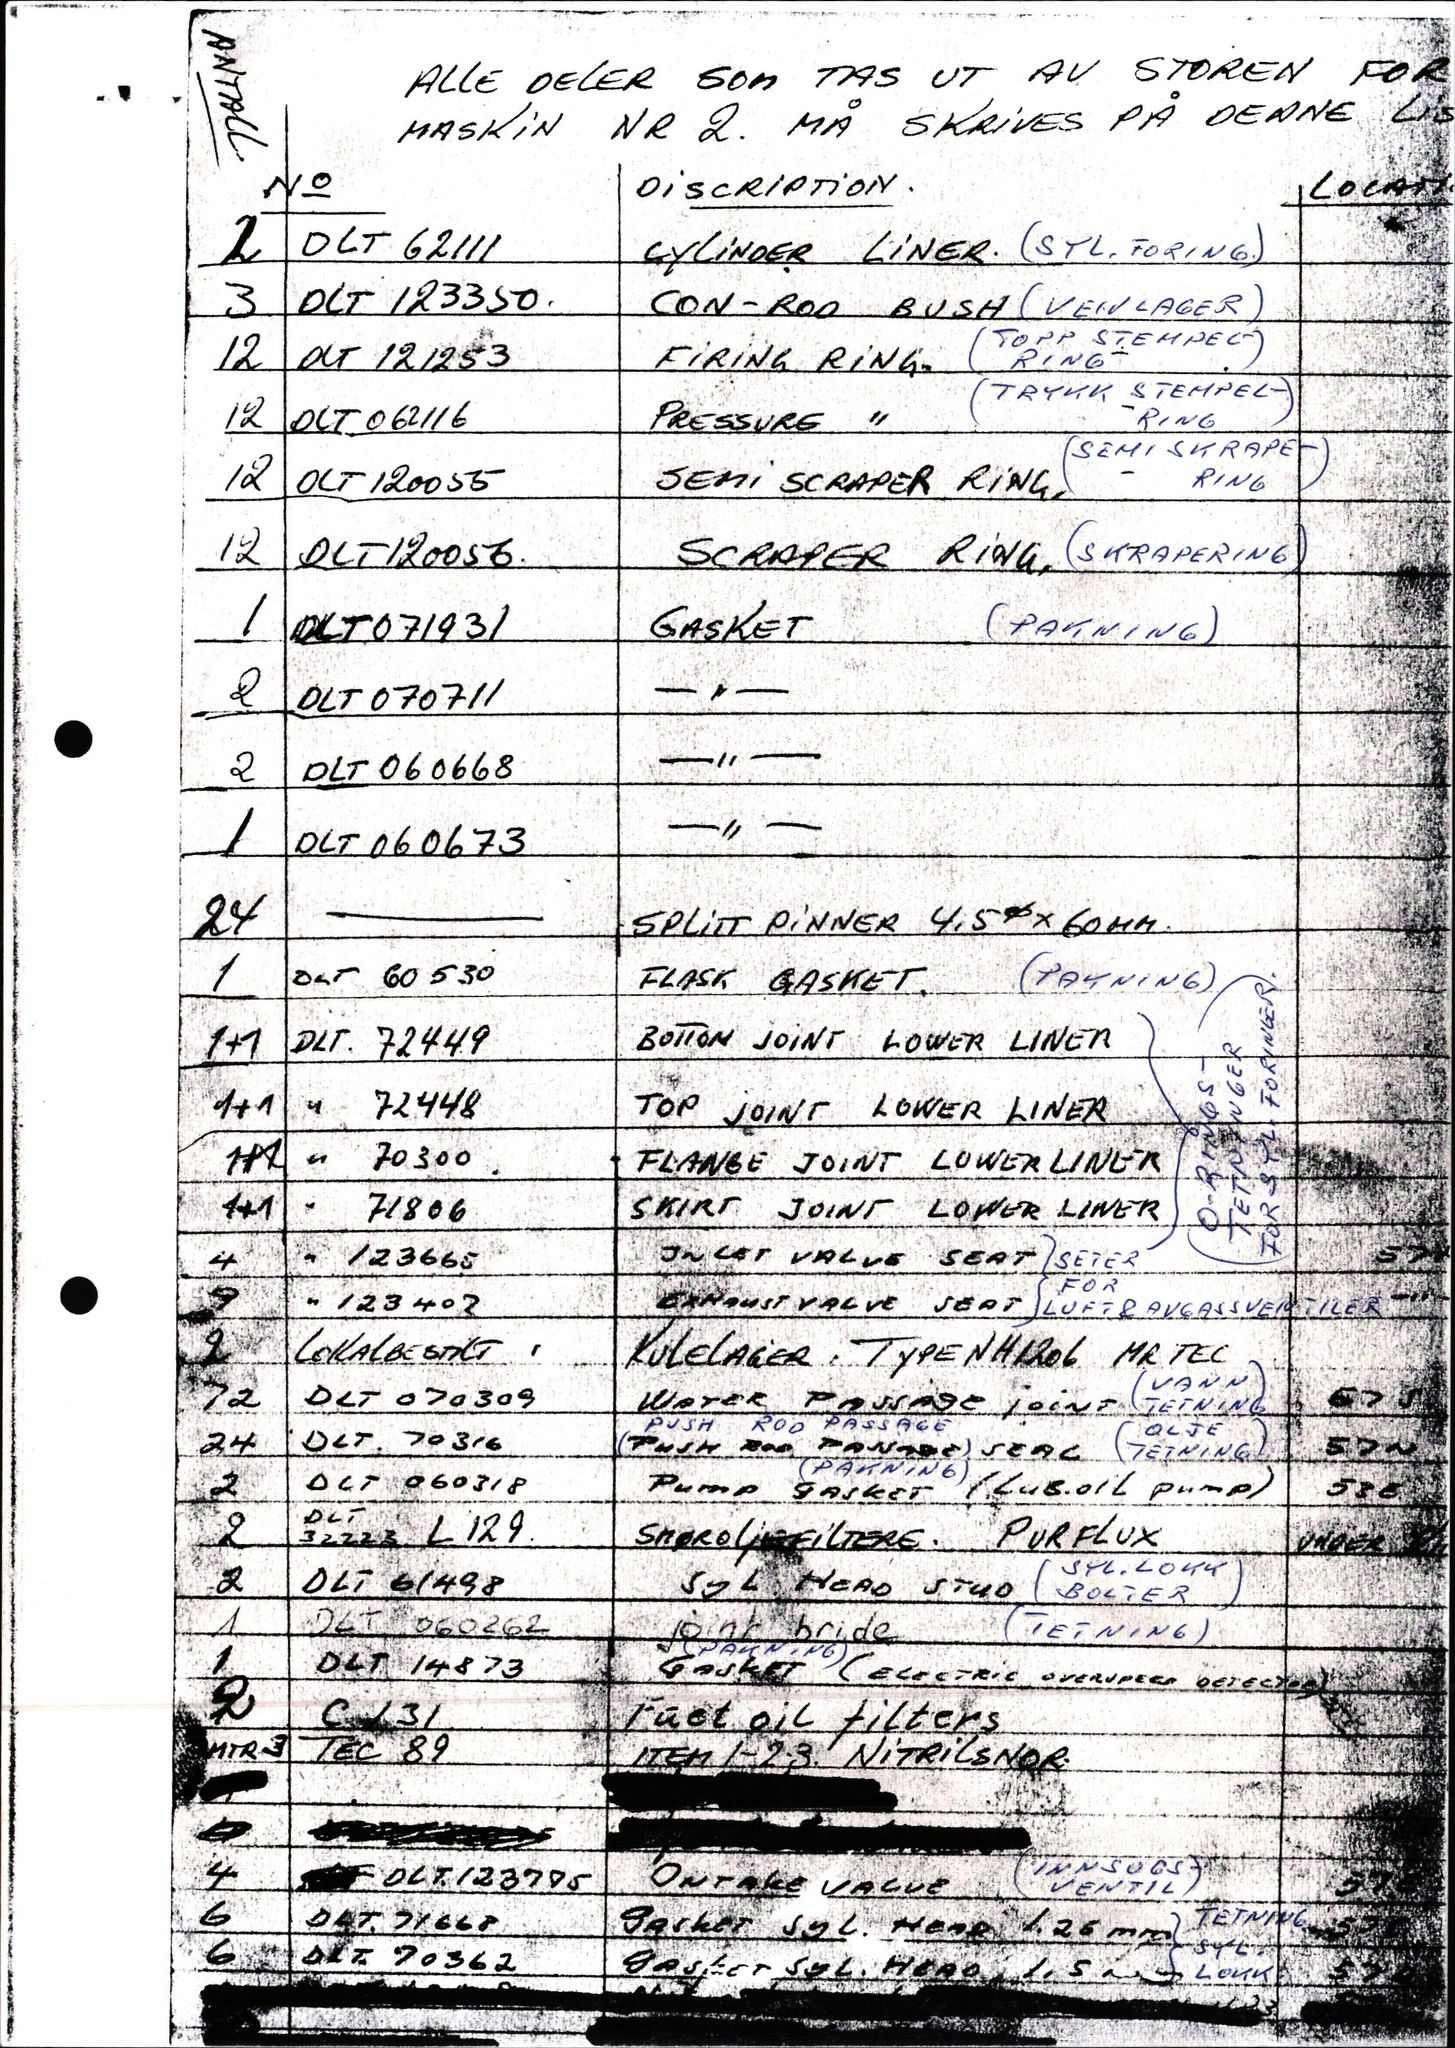 ANTALL
ALLE DELER SOM TAS UT AV STOREN FOR
MASKIN NR 2. MÅ SKRIVES PÅ DENNE LIS
No DISCRIPTION. LOCATI
2 DLT 62111 CYLINDER LINER. (SYL. FORING.)
3 DLT 123350. CON-ROD BUSH (VEIVLAGER)
12 DLT 121253 FIRING RING. (TOPP STEMPEL-
RING)
12 DLT 062116 PRESSURE " (TRYKK STEMPEL-
RING)
12 DLT 120055 SEMI SCRAPER RING. (SEMI SKRAPE-
RING)
12 DLT 120056. SCRAPER RING. (SKRAPERING)
1 DLT 071931 GASKET (PAKNING)
2 DLT 070711 —"—
2 DLT 060668 —"—
1 DLT 060673 —"—
24 —— SPLITT PINNER 4.5ø x 60MM.
1 DLT 60530 FLASK GASKET. (PAKNING)
1+1 DLT. 72449 BOTTOM JOINT LOWER LINER
1+1 " 72448 TOP JOINT LOWER LINER
1+1 " 70300. FLANGE JOINT LOWER LINER
1+1 " 71806 SKIRT JOINT LOWER LINER
(O-RINGS-
TETNINGER
FOR SYL. FORINGER.)
4 " 123665 INLET VALVE SEAT } SETER 57
9 " 123402 EXHAUST VALVE SEAT } FOR
LUFT & AVGASSVENTILER —"—
2 LOKALBESTILT. KULELAGER. TYPE NH1206 MRTEC
72 DLT 070309 WATER PASSAGE JOINT (VANN
TETNING) 67 S
PUSH ROD PASSAGE
24 DLT. 70316 (PUSH ROD PASSAGE) SEAL (OLJE
TETNING) 57N
(PAKNING)
2 DLT 060318 PUMP GASKET (LUB.OIL PUMP) 58E
2 DLT 32223 L129. SMØROLJEFILTERE. PURFLUX UNDER
2 DLT 61498 SYL HEAD STUD (SYL.LOKK
BOLTER)
1 DLT. 060262 joint bride (TETNING)
(PAKNING)
1 DLT 14873 GASKET (ELECTRIC OVERSPEED DETECTOR)
2 C 131 Fuel oil filters
MTR 3 TEC 89 ITEM 1-2-3. NITRILSNOR.
4 DLT.123775 ONTAKE VALVE (INNSUGS-
VENTIL) 57
6 DLT. 71668 Gasket syl. HEAD 1.25 mm } TETNING 57
6 DLT. 70362 GASKET SYL. HEAD 1,5 mm } SYL.
LOKK. 57